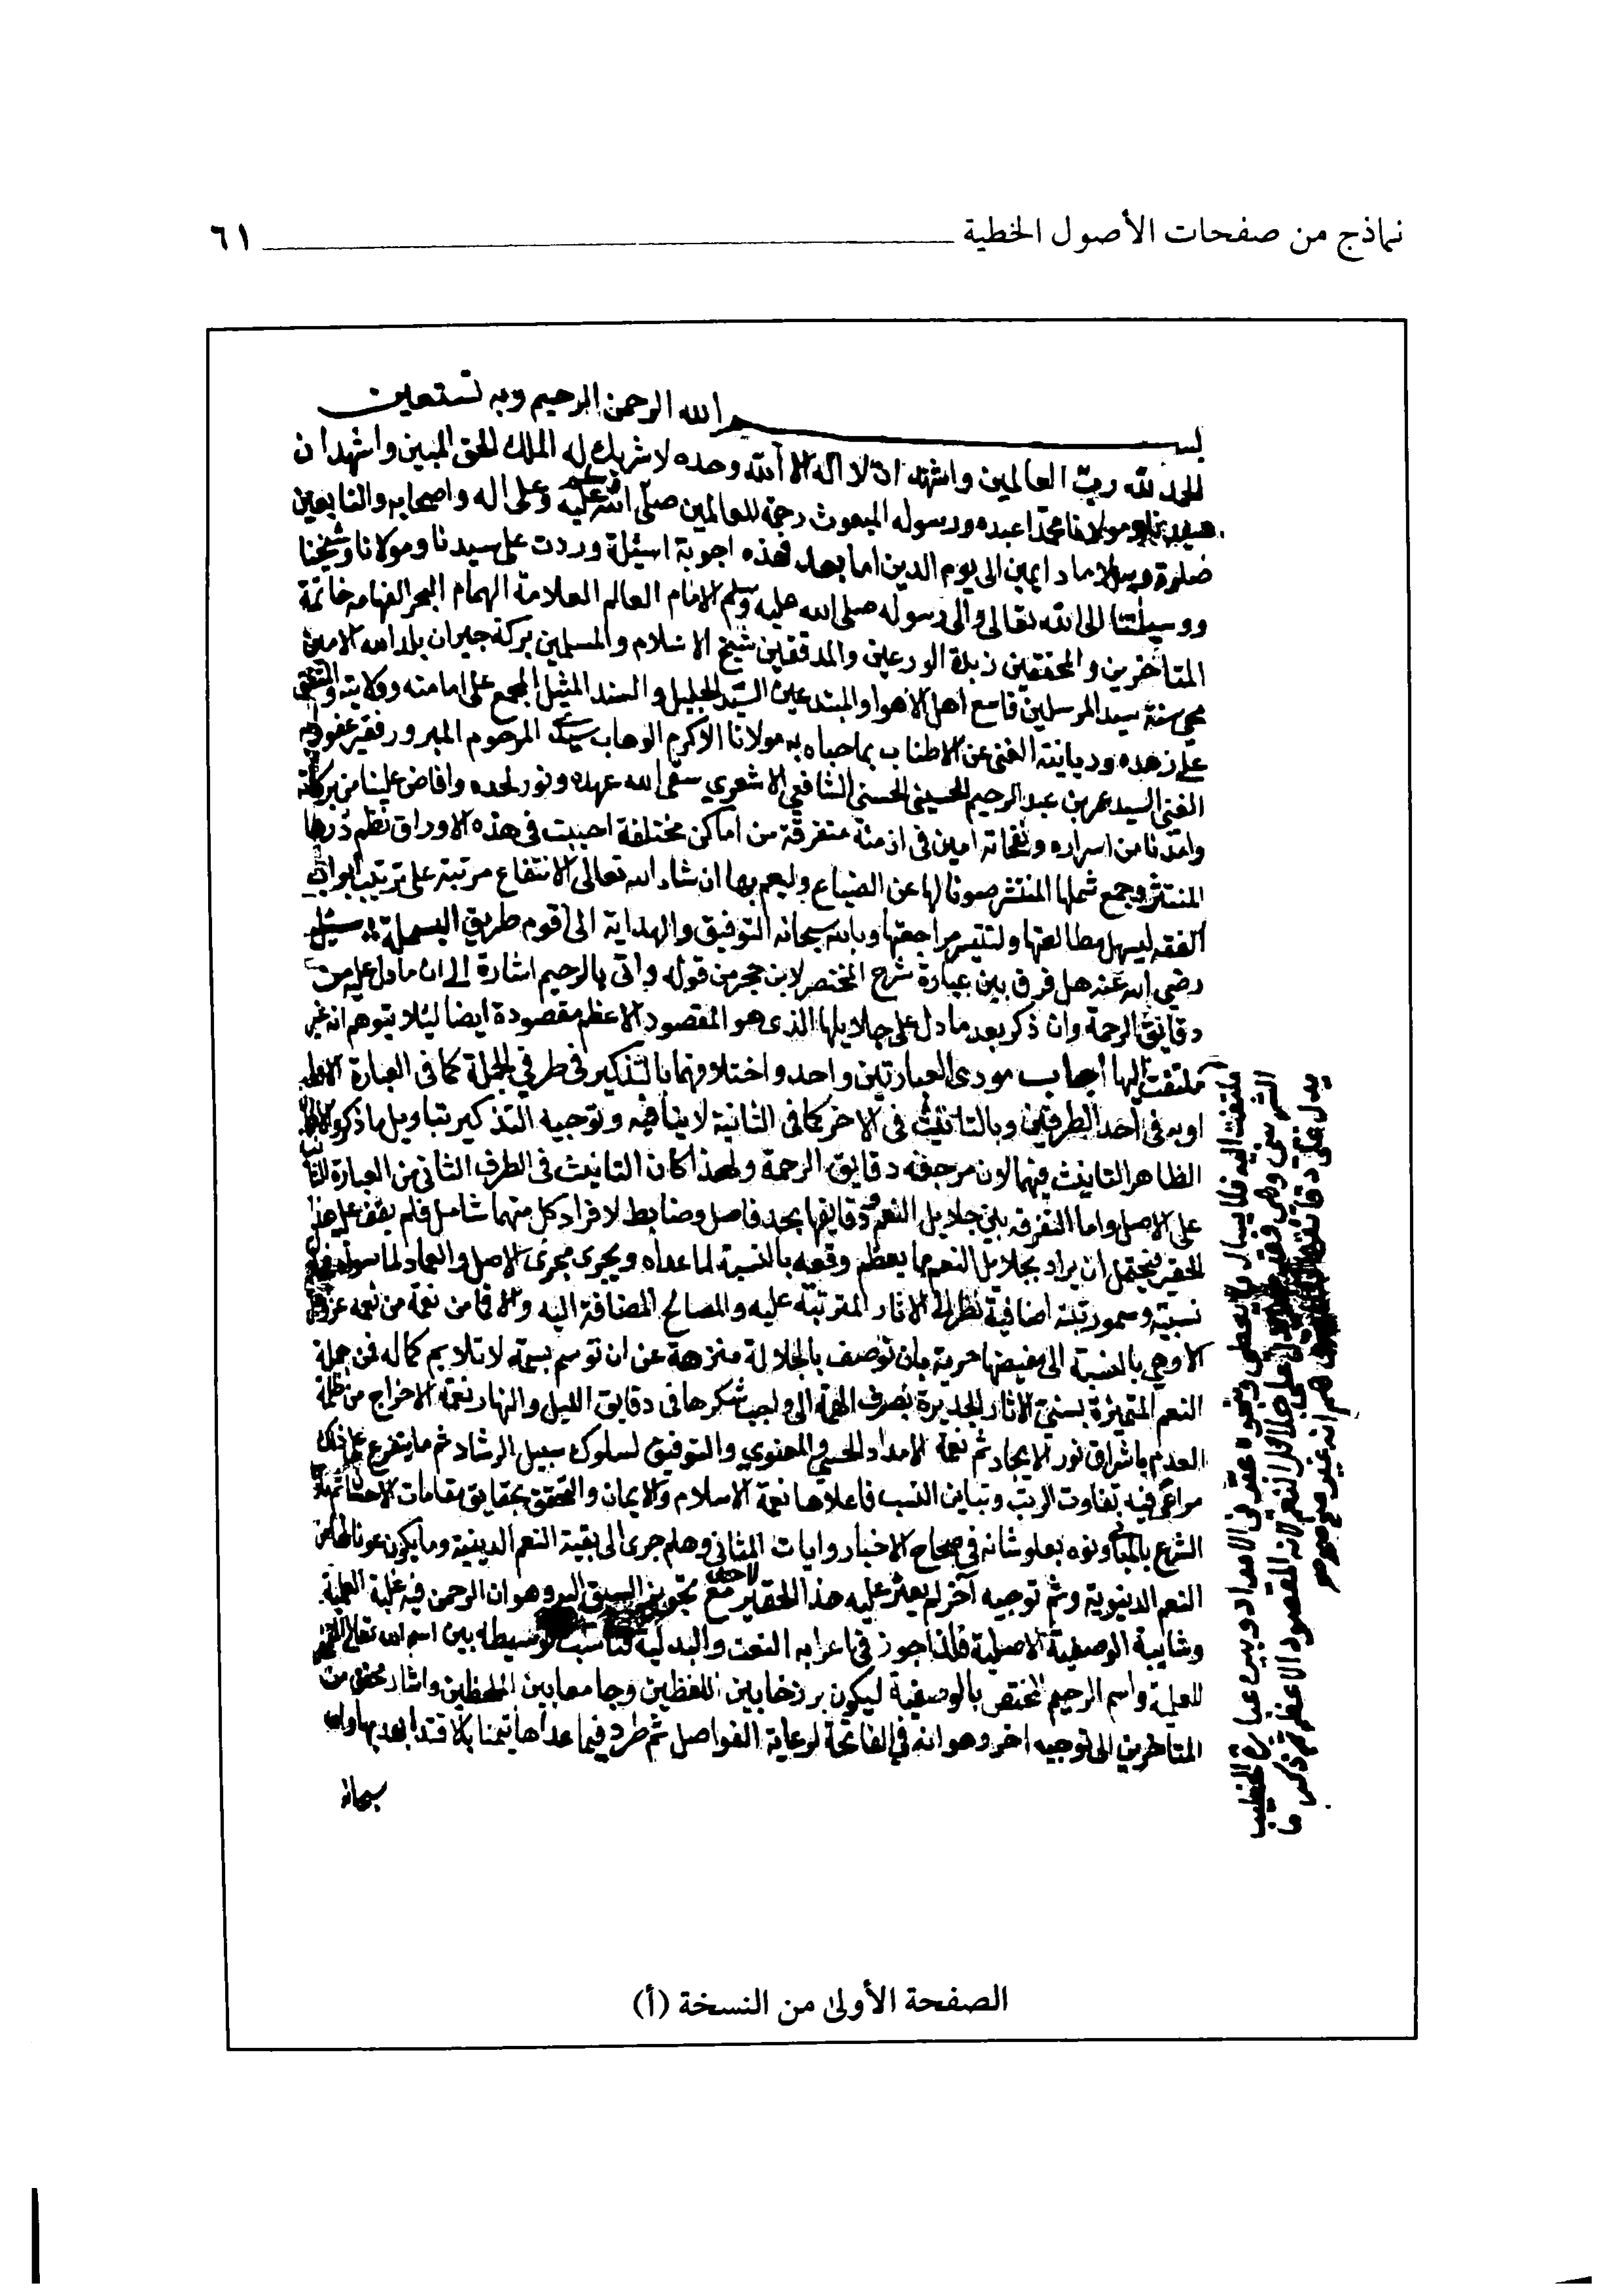 نماذج من صفحات الأصول الخطية ٦١
بسم الله الرحمن الرحيم وبه نستعين
الحمد لله رب العالمين واشهد ان لا اله الا الله وحده لا شريك له الملك الحق المبين واشهد ان
سيدنا ومولانا محمدا عبده ورسوله المبعوث رحمة للعالمين صلى الله عليه وسلم وعلى اله واصحابه والتابعين
صلوة وسلاما دايمين الى يوم الدين اما بعد فهذه اجوبة اسئلة وردت على سيدنا ومولانا وشيخنا
ووسيلتنا الى الله تعالى والى رسوله صلى الله عليه وسلم الامام العالم العلامة الهمام البحر الفهامه خاتمة
المتاخرين والمحققين زبدة الورعين والمدققين شيخ الاسلام والمسلمين بركة جيران بلد الله الامين
محي سنة سيد المرسلين قامع اهل الاهوا والمبتدعين السيد الجليل والسند المثيل المجمع على امامته وولايته والمتفق
على زهده وديانته الغني عن الاطناب بما حباه به مولانا الاكرم الوهاب المرحوم المبرور فقير عفو ربه
الغني السيد عمر بن عبد الرحيم الحسيني الحسني الشافعي الاشعري سقى الله عهده ونور لحده وافاض علينا من بركاته
وامدنا من اسراره ونفحاته امين في ازمنة متفرقة من اماكن مختلفة احببت في هذه الاوراق نظم دررها
المنتثر وجمع شملها المنتشر صونا لها عن الضياع وليعم بها ان شاء الله تعالى الانتفاع مرتبة على ترتيب ابواب
الفقه ليسهل مطالعتها ولتتيسر مراجعتها وبالله سبحانه التوفيق والهداية الى اقوم طريق البسملة سئل
رضي الله عنه هل فرق بين عبارة شرح المختصر لابن حجر من قوله واتى بالرحيم اشارة الى ان ما دل عليه من
دقايق الرحمة وان ذكر بعد ما دل على جلايلها الذى هو المقصود الاعظم مقصودة ايضا ليئلا يتوهم انه غير
ملتفت اليها اجاب مودى العبارتين واحد واختلافهما بالتذكير في طرفي الجملة كما في العبارة الاولى
اوبه في احد الطرفين وبالتانيث في الاخر كما في الثانية لا ينافيه وتوجيه التذكير بتاويل ما ذكر والا
الظاهر التانيث فيهما لان مرجعه دقايق الرحمة ولهذا كان التانيث في الطرف الثاني من العبارة
على الاصل واما التفرقه بين جلايل النعم ودقايقها بحد فاصل وضابط لافراد كل منهما شامل فلم يقف عليه هذا
الحقير فيحتمل ان يراد بجلايل النعم ما يعظم وقعه بالنسبة لما عداه ويجرى مجرى الاصل والعماد لما سواه
نسبية وسمو رتبته اضافية نظرا الى الاثار المترتبة عليه والمصالح المضافة اليه والا فما من نعمة من نعمه
الا وهي بالنسبة الى مفيضها حرية بان توصف بالجلالة منزهة عن ان توسم بسمة لا تلايم كماله فمن جملة
النعم المتميزة بسني الاثار الجديرة بصرف الهمة الى واجب شكرها في دقايق الليل والنهار نعمة الاخراج من ظلمة
العدم باشراق نور الايجاد ثم نعمة الامداد الحسي والمعنوي والتوفيق لسلوك سبيل الرشاد ثم ما يتفرع على ذلك
مراعى فيه تفاوت الرتب وتباين النسب فاعلاها نعمة الاسلام والايمان والتحقق بحقايق مقامات الاحسان
الشرع ونوه بعلو شانه في صحاح الاخبار وايات المثاني وهلم جرى الى بقية النعم الدينية وما يكون عونا لها من
النعم الدنيوية وثم توجيه آخر لم يعثر عليه هذا الحقير مع تجويز السبق اليه وهو ان الرحمن فيه غلبة العلمية
وشايبة الوصفية الاصلية فلذا جوز في اعرابه النعت والبدلية فناسب توسيطه بين اسم الله تعالى
للعلمية واسم الرحيم المختص بالوصفية ليكون برزخا بين اللفظين وجامعا بين الملحظين واشار بعض من
المتاخرين الى توجيه اخر وهو انه في الفاتحة لرعاية الفواصل ثم طرد فيما عداها تيمنا بالاقتدا بهديها والله
سبحانه
عبارة الخطيب
الشربيني وهي
على جلائل النعم لانه المقصود الاعظم ثم ذكر ما
يدل على دقائقها
الصفحة الأولى من النسخة (أ)